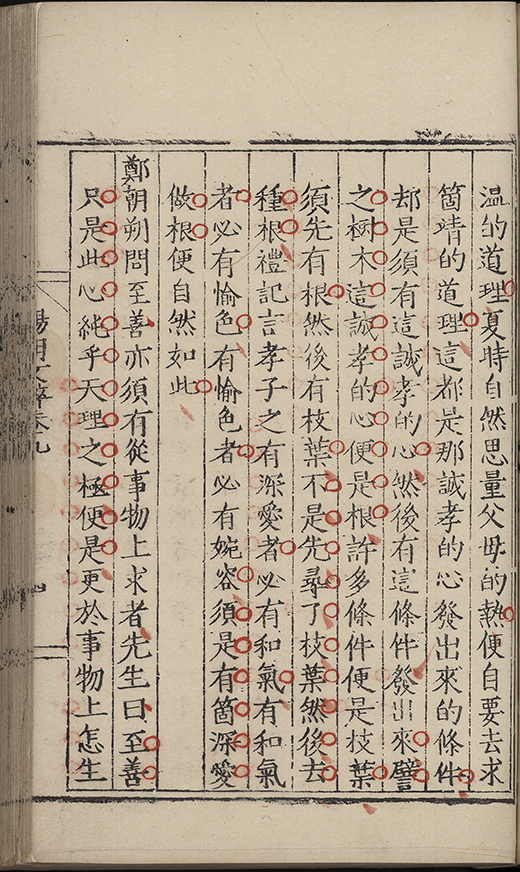 温的道理夏時自然思量父母的熱便自要去求
箇清的道理這都是那誠孝的心發出來的條件
却是須有這誠孝的心然後有這條件發出來譬
之樹木這誠孝的心便是根許多條件便是枝葉
須先有根然後有枝葉不是先尋了枝葉然後去
種根禮記言孝子之有深愛者必有和氣有和氣
者必有愉色有愉色者必有婉容須是有箇深愛
做根便自然如此
鄭朝朔問至善亦須有從事物上求者先生曰至善
只是此心純乎天理之極便是更於事物上怎生